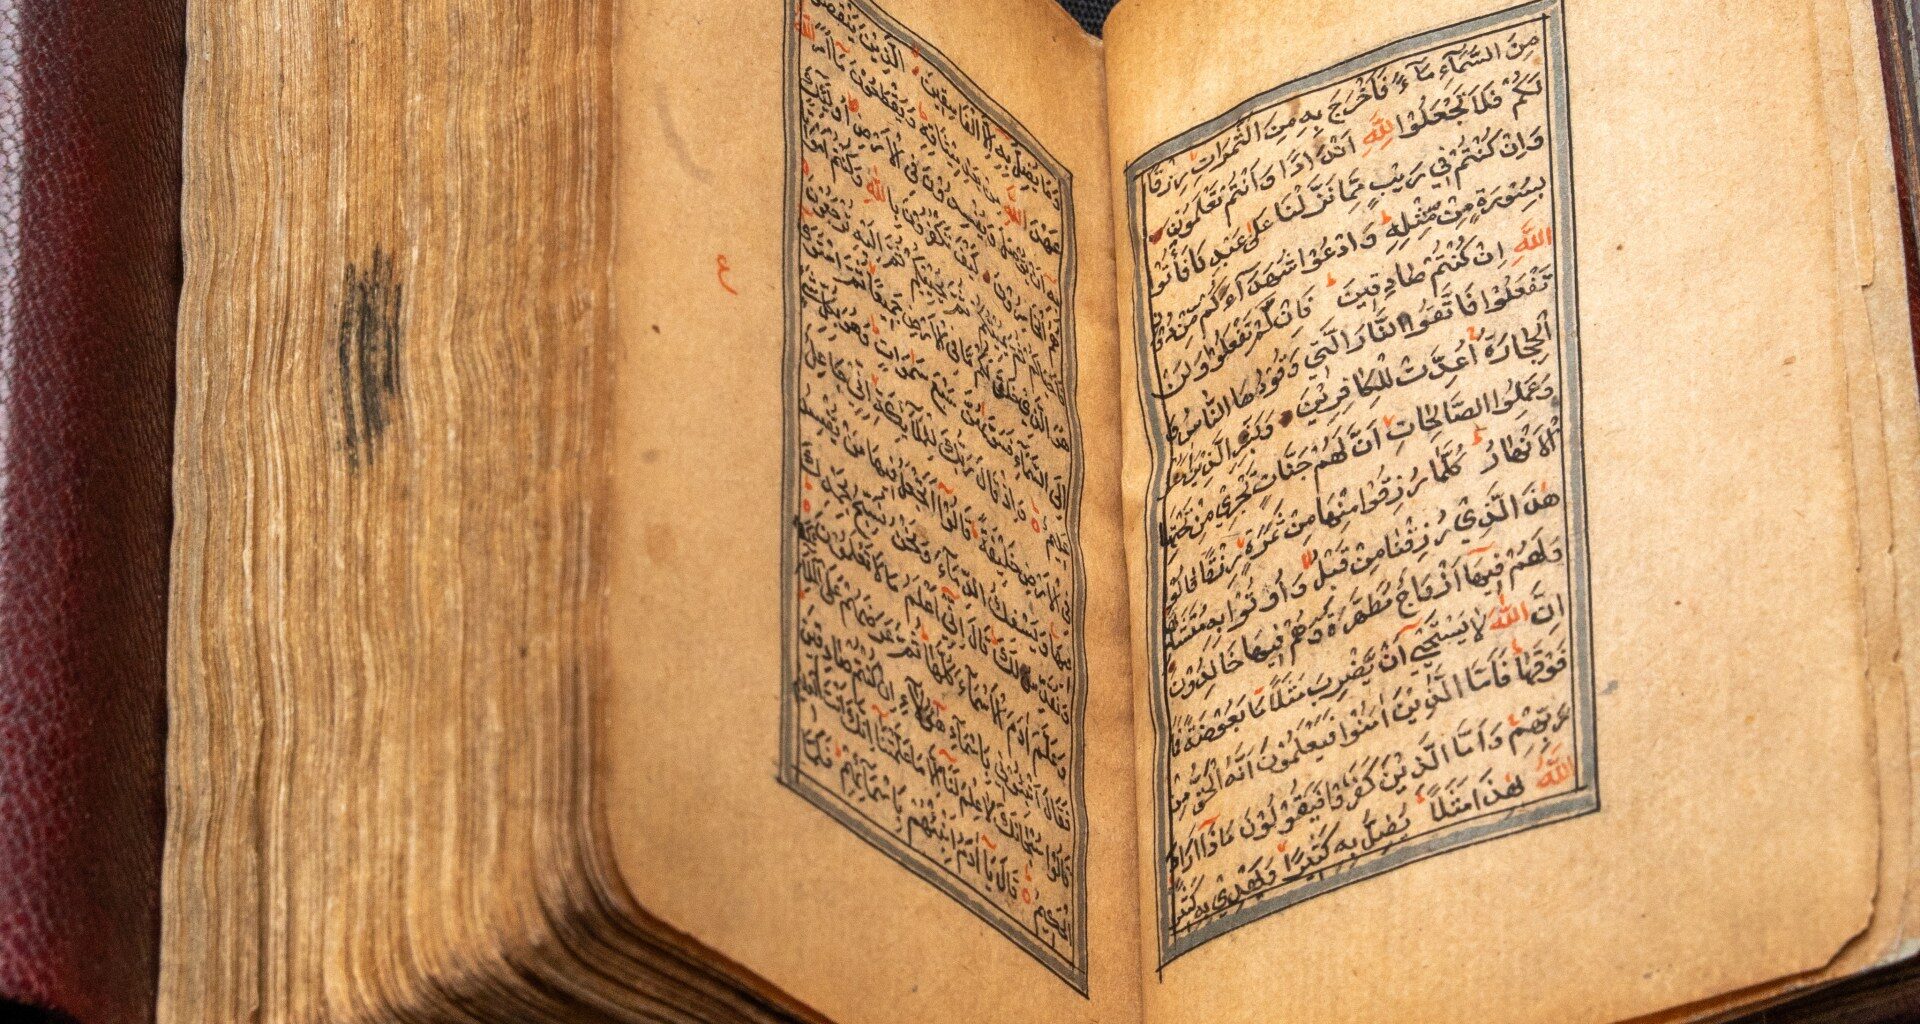 مِنَ السَّمَآءِ مَآءً فَاَخْرَجَ بِهٖ مِنَ الثَّمَرَاتِ رِزْقًا
لَكُمْ فَلَا تَجْعَلُوْا لِلّٰهِ اَنْدَادًا وَاَنْتُمْ تَعْلَمُوْنَ
وَاِنْ كُنْتُمْ فِيْ رَيْبٍ مِمَّا نَزَّلْنَا عَلٰى عَبْدِنَا فَأْتُوْا
بِسُوْرَةٍ مِنْ مِّثْلِهٖ وَادْعُوْا شُهَدَآءَكُمْ مِنْ دُوْنِ
اللّٰهِ اِنْ كُنْتُمْ صَادِقِيْنَ فَاِنْ لَمْ تَفْعَلُوْا وَلَنْ
تَفْعَلُوْا فَاتَّقُوا النَّارَ الَّتِيْ وَقُوْدُهَا النَّاسُ وَ
الْحِجَارَةُ اُعِدَّتْ لِلْكَافِرِيْنَ وَبَشِّرِ الَّذِيْنَ
وَعَمِلُوا الصَّالِحَاتِ اَنَّ لَهُمْ جَنَّاتٍ تَجْرِيْ مِنْ تَحْتِهَا
الْاَنْهَارُ كُلَّمَا رُزِقُوْا مِنْهَا مِنْ ثَمَرَةٍ رِزْقًا قَالُوْا
هٰذَا الَّذِيْ رُزِقْنَا مِنْ قَبْلُ وَاُوْتُوْا بِهٖ مُتَشَابِهًا
وَلَهُمْ فِيْهَا اَزْوَاجٌ مُطَهَّرَةٌ وَهُمْ فِيْهَا خَالِدُوْنَ
اِنَّ اللّٰهَ لَا يَسْتَحْيِيْ اَنْ يَضْرِبَ مَثَلًا مَّا بَعُوْضَةً فَمَا
فَوْقَهَا فَاَمَّا الَّذِيْنَ اٰمَنُوْا فَيَعْلَمُوْنَ اَنَّهُ الْحَقُّ مِنْ
رَبِّهِمْ وَاَمَّا الَّذِيْنَ كَفَرُوْا فَيَقُوْلُوْنَ مَاذَا اَرَادَ
اللّٰهُ بِهٰذَا مَثَلًا يُضِلُّ بِهٖ كَثِيْرًا وَيَهْدِيْ بِهٖ كَثِيْرًا
وَمَا يُضِلُّ بِهٖ اِلَّا الْفَاسِقِيْنَ الَّذِيْنَ يَنْقُضُوْنَ
عَهْدَ اللّٰهِ مِنْ بَعْدِ مِيْثَاقِهٖ وَيَقْطَعُوْنَ مَآ اَمَرَ اللّٰهُ
بِهٖ اَنْ يُوْصَلَ وَيُفْسِدُوْنَ فِي الْاَرْضِ اُولٰٓئِكَ
كَيْفَ تَكْفُرُوْنَ بِاللّٰهِ وَكُنْتُمْ اَمْوَاتًا
ثُمَّ اِلَيْهِ تُرْجَعُوْنَ
هُوَ الَّذِيْ خَلَقَ لَكُمْ مَا فِي الْاَرْضِ جَمِيْعًا ثُمَّ اسْتَوٰى
اِلَى السَّمَآءِ فَسَوّٰىهُنَّ سَبْعَ سَمٰوَاتٍ وَهُوَ بِكُلِّ شَيْءٍ
عَلِيْمٌ وَاِذْ قَالَ رَبُّكَ لِلْمَلٰٓئِكَةِ اِنِّيْ جَاعِلٌ
فِي الْاَرْضِ خَلِيْفَةً قَالُوْآ اَتَجْعَلُ فِيْهَا مَنْ يُفْسِدُ
فِيْهَا وَيَسْفِكُ الدِّمَآءَ وَنَحْنُ نُسَبِّحُ بِحَمْدِكَ
وَنُقَدِّسُ لَكَ قَالَ اِنِّيْٓ اَعْلَمُ مَا لَا تَعْلَمُوْنَ
وَعَلَّمَ اٰدَمَ الْاَسْمَآءَ كُلَّهَا ثُمَّ عَرَضَهُمْ عَلَى
فَقَالَ اَنْبِئُوْنِيْ بِاَسْمَآءِ هٰٓؤُلَآءِ اِنْ كُنْتُمْ صَادِقِيْنَ
قَالُوْا سُبْحَانَكَ لَا عِلْمَ لَنَآ اِلَّا مَا عَلَّمْتَنَا اِنَّكَ اَنْتَ
الْحَكِيْمُ قَالَ يَآ اٰدَمُ اَنْبِئْهُمْ بِاَسْمَآئِهِمْ فَلَمَّا
ع